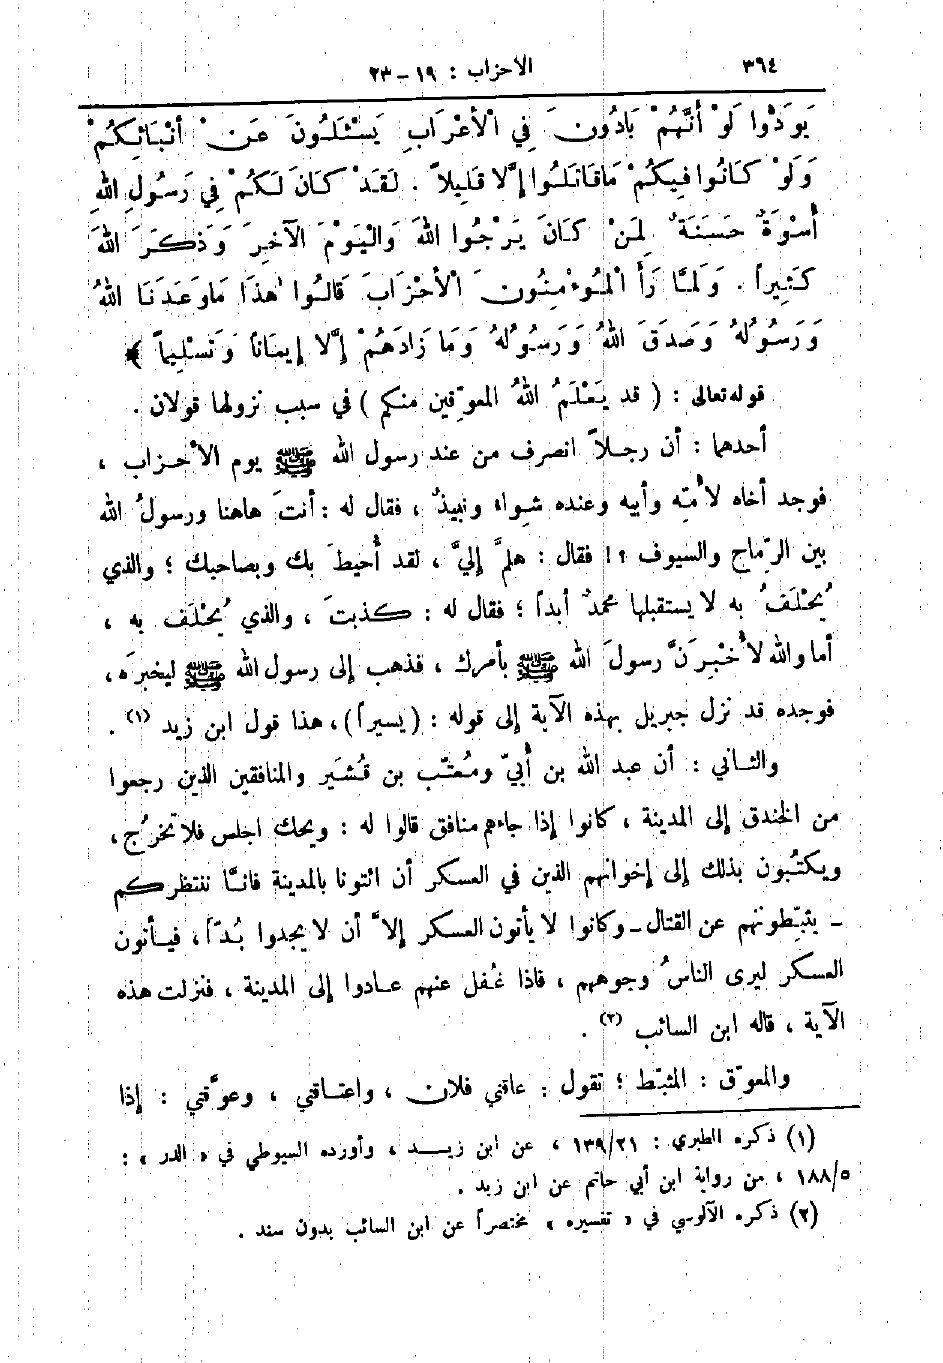 ٣٩٤ الأحزاب : ١٩ – ٢٣
يَوَدُّوا لَوْ أَنَّهُمْ بَادُونَ فِي الْأَعْرَابِ يَسْئَلُونَ عَنْ أَنْبَائِكُمْ
وَلَوْ كَانُوا فِيكُمْ مَاقَاتَلُوا إِلَّا قَلِيلاً . لَقَدْ كَانَ لَكُمْ فِي رَسُولِ اللهِ
أُسْوَةٌ حَسَنَةٌ لِمَنْ كَانَ يَرْجُوا اللهَ وَالْيَوْمَ الْآخِرَ وَذَكَرَ اللهَ
كَثِيراً . وَلَمَّا رَأَ الْمُؤْمِنُونَ الْأَحْزَابَ قَالُوا هٰذَا مَاوَعَدَنَا اللهُ
وَرَسُولُهُ وَصَدَقَ اللهُ وَرَسُولُهُ وَمَا زَادَهُمْ إِلَّا إِيمَاناً وَتَسْلِيماً ﴾
قوله تعالى : ( قد يَعْلَمُ اللهُ المعوِّقين منكم ) في سبب نزولها قولان .
أحدهما : أن رجلاً انصرف من عند رسول الله ﷺ يوم الأحزاب ،
فوجد أخاه لأُمِّه وأبيه وعنده شِواء ونبيذٌ ، فقال له : أنتَ هاهنا ورسولُ الله
بين الرِّماح والسيوف ؟! فقال : هلمَّ إليَّ ، لقد أُحيطَ بك وبصاحبك ؛ والذي
يُحْلَفُ به لا يستقبلها محمدٌ أبداً ؛ فقال له : كذبتَ ، والذي يُحْلَف به ،
أما والله لأُخْبِرَنَّ رسولَ الله ﷺ بأمرك ، فذهب إلى رسول الله ﷺ ليخبرَه ،
فوجده قد نزل جبريل بهذه الآية إلى قوله : ( يسيراً ) ، هذا قول ابن زيد (١) .
والثاني : أن عبد الله بن أُبيّ ومُعتِّب بن قُشَير والمنافقين الذين رجعوا
من الخندق إلى المدينة ، كانوا إذا جاءهم منافق قالوا له : ويحك اجلس فلا تخرُج ،
ويكتُبون بذلك إلى إخوانهم الذين في العسكر أن ائتونا بالمدينة فانَّا ننتظركم
ـ يثبِّطونهم عن القتال ـ وكانوا لا يأتون العسكر إلاَّ أن لا يجدوا بُدّاً ، فيأتون
العسكر ليرى الناسُ وجوههم ، فاذا غُفل عنهم عادوا إلى المدينة ، فنزلت هذه
الآية ، قاله ابن السائب (٢) .
والمعوِّق : المثبِّط ؛ تقول : عاقني فلان ، واعتاقني ، وعوَّقني : إذا
(١) ذكره الطبري : ١٣٩/٢١ ، عن ابن زيد ، وأورده السيوطي في « الدر » :
١٨٨/٥ ، من رواية ابن أبي حاتم عن ابن زيد .
(٢) ذكره الآلوسي في « تفسيره » مختصراً عن ابن السائب بدون سند .